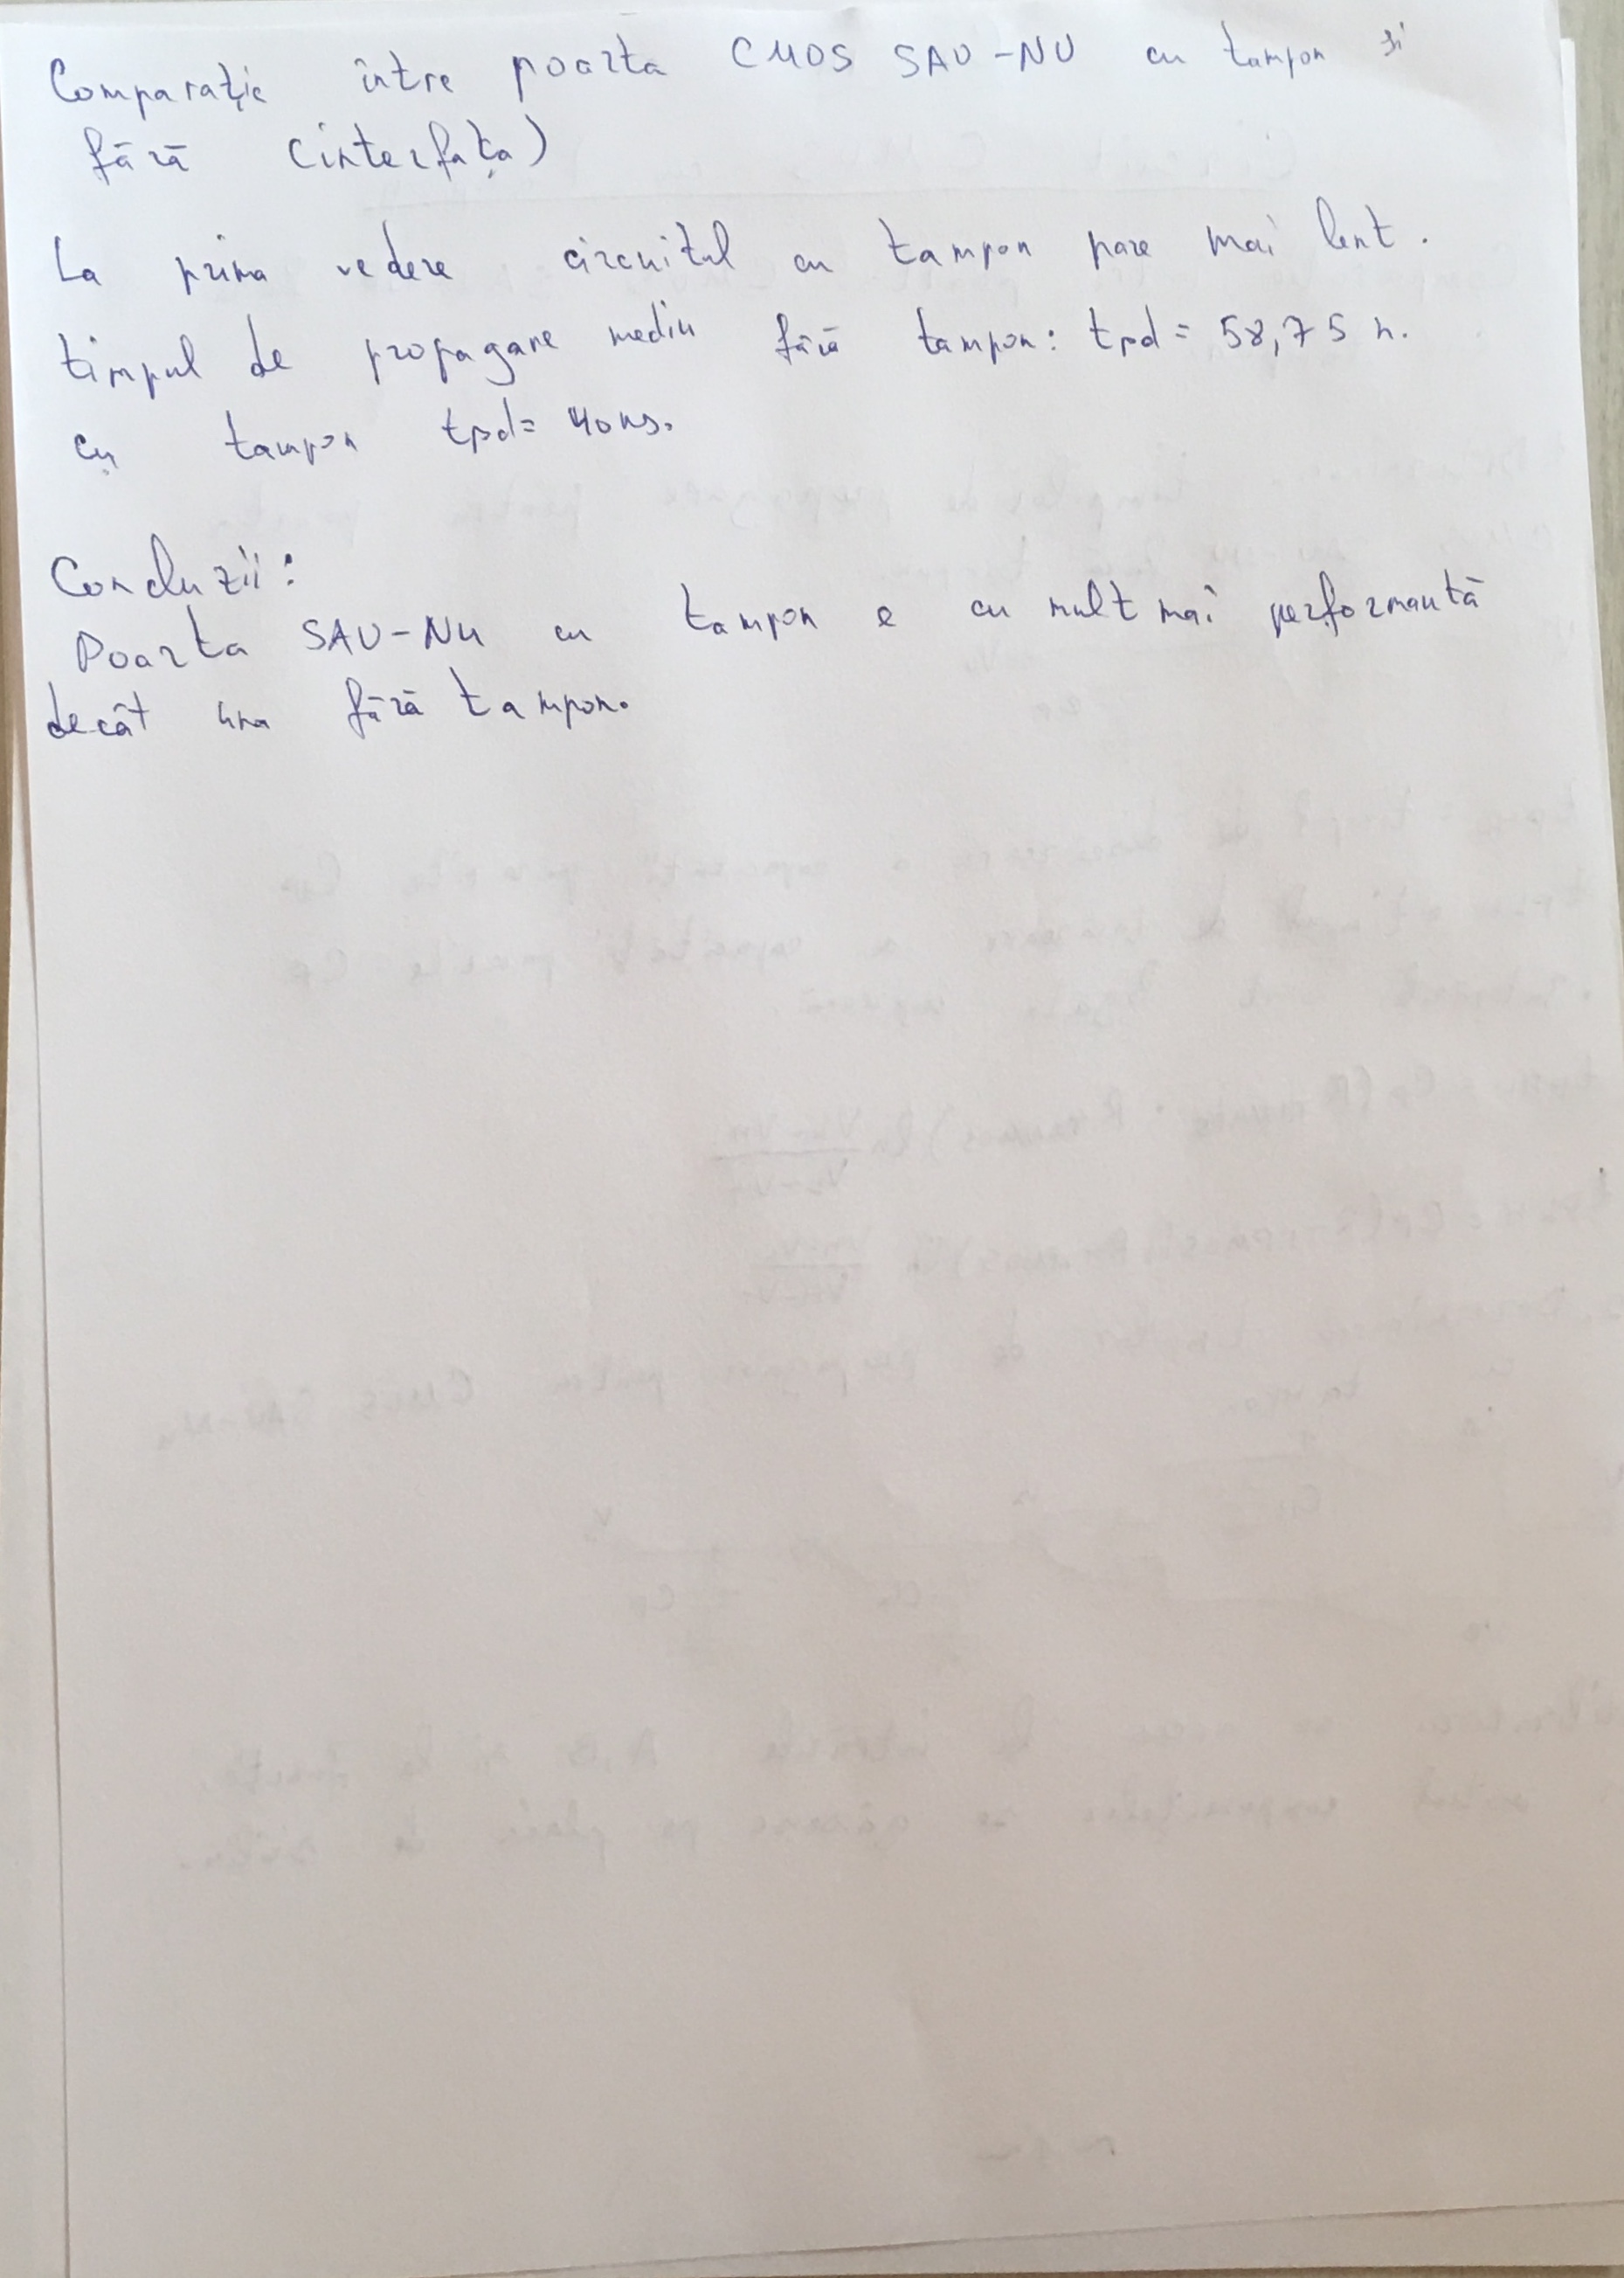 Comparație între poarta CMOS SAU-NU cu tampon și
fără (interfața)
La prima vedere circuitul cu tampon pare mai lent.
timpul de propagare mediu fără tampon: tpd = 58,75 n.
cu tampon tpd= 40ns.
Concluzii:
Poarta SAU-NU cu tampon e cu mult mai performantă
decât una fără tampon.